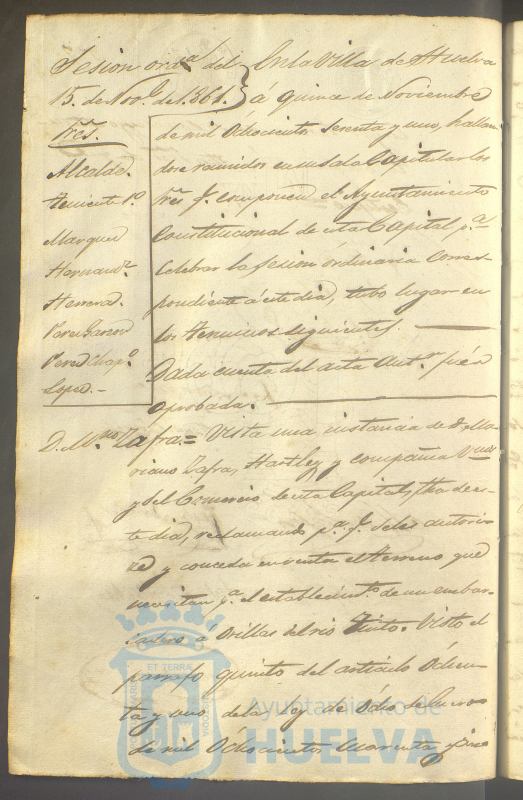 Sesion ord.ª del
15. de Nov.e de 1861.
Sres.
Alcalde.
Teniente 1º
Marquez
Hernand.z
Herrera.
Perez Garcia
Perez Chap.º
Lopez.
En la Villa de Huelva
á quince de Noviembre
de mil Ochocientos Sesenta y uno, hallan
dose reunidos en su Sala Capitular los
Sres q. componen el Ayuntamiento
Constitucional de esta Capital p.ª
celebrar la Sesion ordinaria corres-
pondiente á este dia, tubo lugar en
los terminos siguientes.
Dada cuenta del acta ant.or fué
aprobada.
D. M.no Zafra = Vista una instancia de D. Ma-
riano Zafra, Hartley y compañia
y del Comercio de esta Capital, fha de es-
te dia, reclamando p.ª q. se les autori-
ze y conceda en venta el terreno que
necesitan p.ª el establecim.to de un embar-
cadero á Orillas del rio Tinto. Visto el
parrafo quinto del articulo Ochen-
ta y uno de la ley de Ocho de Enero
de mil Ochocientos Cuarenta y cinco
ET TERRAE
Ayuntamiento de
HUELVA